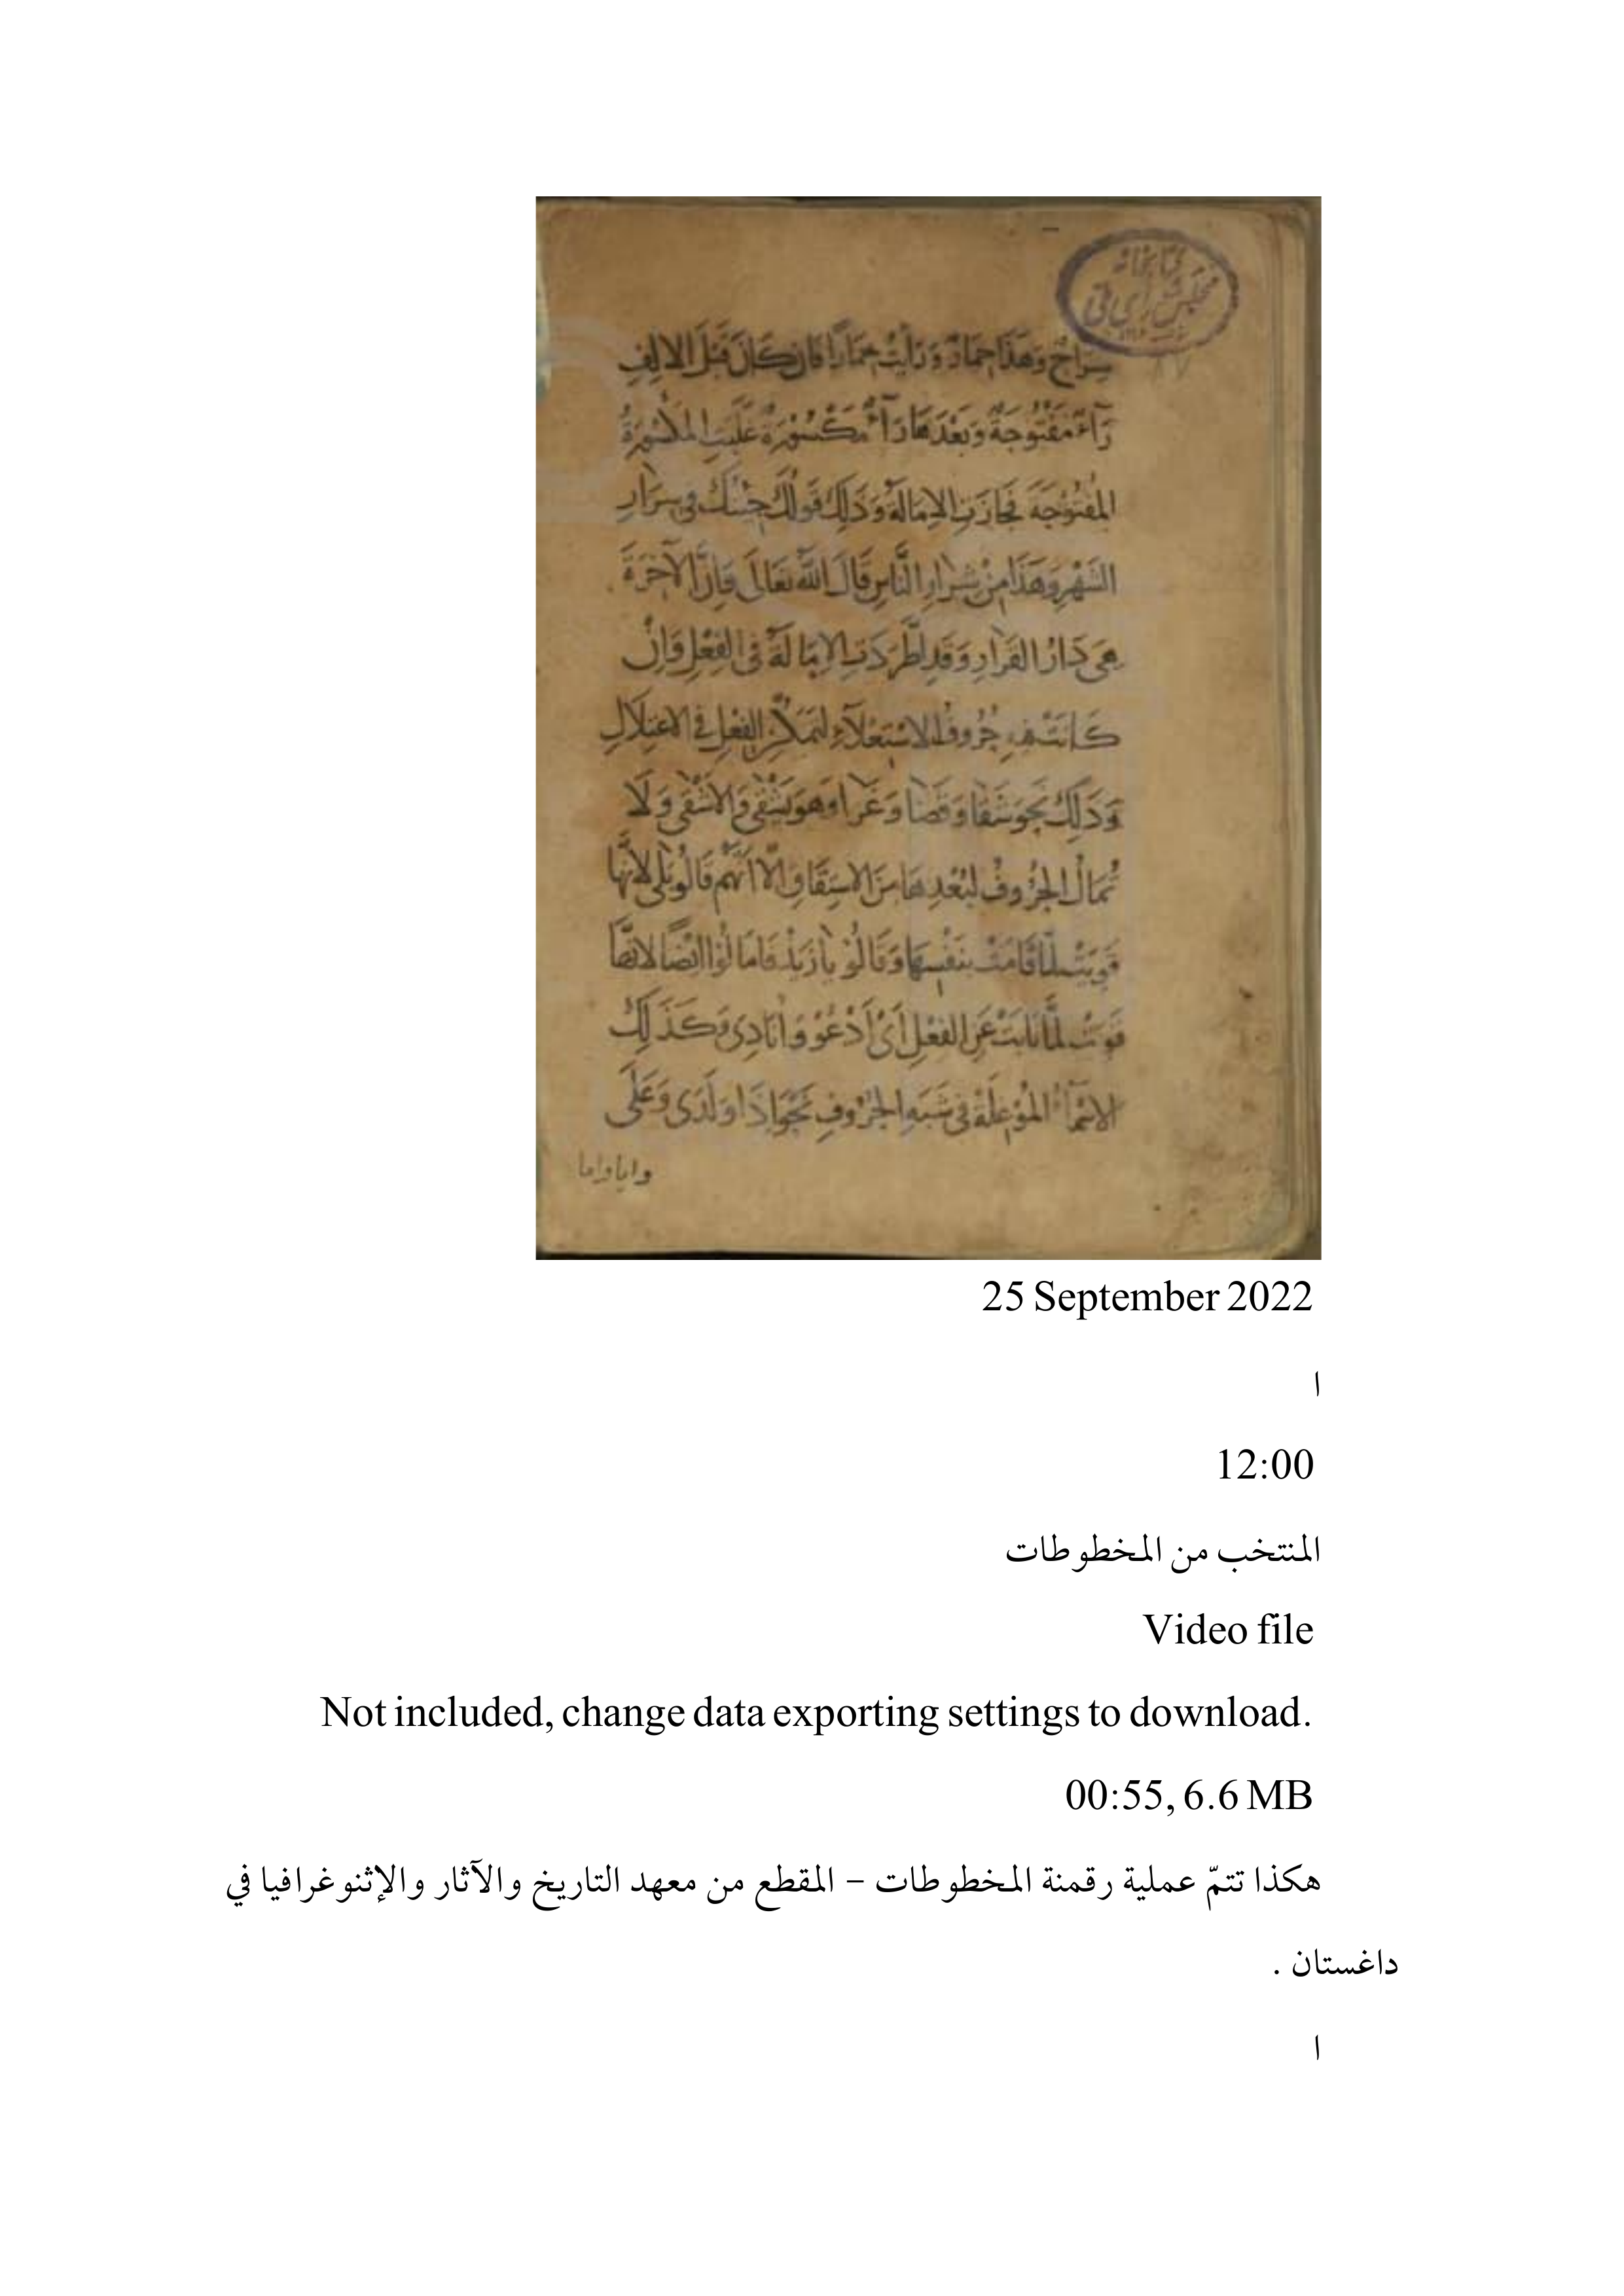 كتابخانه
مجلس شورای ملی
سِرَاجٌ وَهَذَا حِمَارٌ وَرَأَيْتُ حِمَارًا فَإِن كَانَ قَبْلَ الالِفِ
رَآءٌ مَفْتُوحَةٌ وَبَعْدَهَا رَآءٌ مَكْسُورَةٌ غَلَبَتِ المَكْسُورَةُ
المَفْتُوحَةَ فَجَازَتِ الاِمَالَةُ وَذَلِكَ قَولُكَ جِئْتُكَ فِى سِرَارِ
الشَهْرِ وَهَذَا مِنْ شِرَارِ النَّاسِ قَالَ اللهُ تَعَالَى وَإِنَّ الآخِرَةَ
هِىَ دَارُ القَرَارِ وَقَدِ اطَّرَدَتِ الاِمَالَةُ فِى الفِعْلِ وَاِنْ
كَانَتْ فِيهِ حُرُوفُ الاسْتِعْلَآءِ لِتَمَكُّنِ الفِعْلِ فِى الاعْتِلَالِ
وَذَلِكَ نَحْوَ شَقَا وَقَضَا وَغَزَا وَهوَ يَشْقَى وَالاَشْقَى وَلَا
تُمَالُ الحُرُوفُ لِبُعْدِهَا مِنَ الاشتِقَاقِ اِلَّا اَنَّهُم قَالُوا بَلَى لاَنَّهَا
قَوِيَتْ لَمَّا قَامَتْ بِنَفْسِهَا وَقَالُوْ يا زَيْدُ فَامَالُوْا ايْضًا لاَنَّهَا
قَوِيَتْ لَمَّا نَابَتْ عَنِ الفِعْلِ اَىْ اَدْعُوْ وَاُنَادِى وَكَذَلِكَ
الاسْمَآءُ المُوْغِلَةُ فِى شَبَهِ الحُرُوفِ نَحْوَ اِذَا وَلَدَى وَعَلَى
واما واما
25 September 2022
ا
12:00
المنتخب من المخطوطات
Video file
Not included, change data exporting settings to download.
00:55, 6.6 MB
هكذا تتمّ عملية رقمنة المخطوطات – المقطع من معهد التاريخ والآثار والإثنوغرافيا في
داغستان .
ا